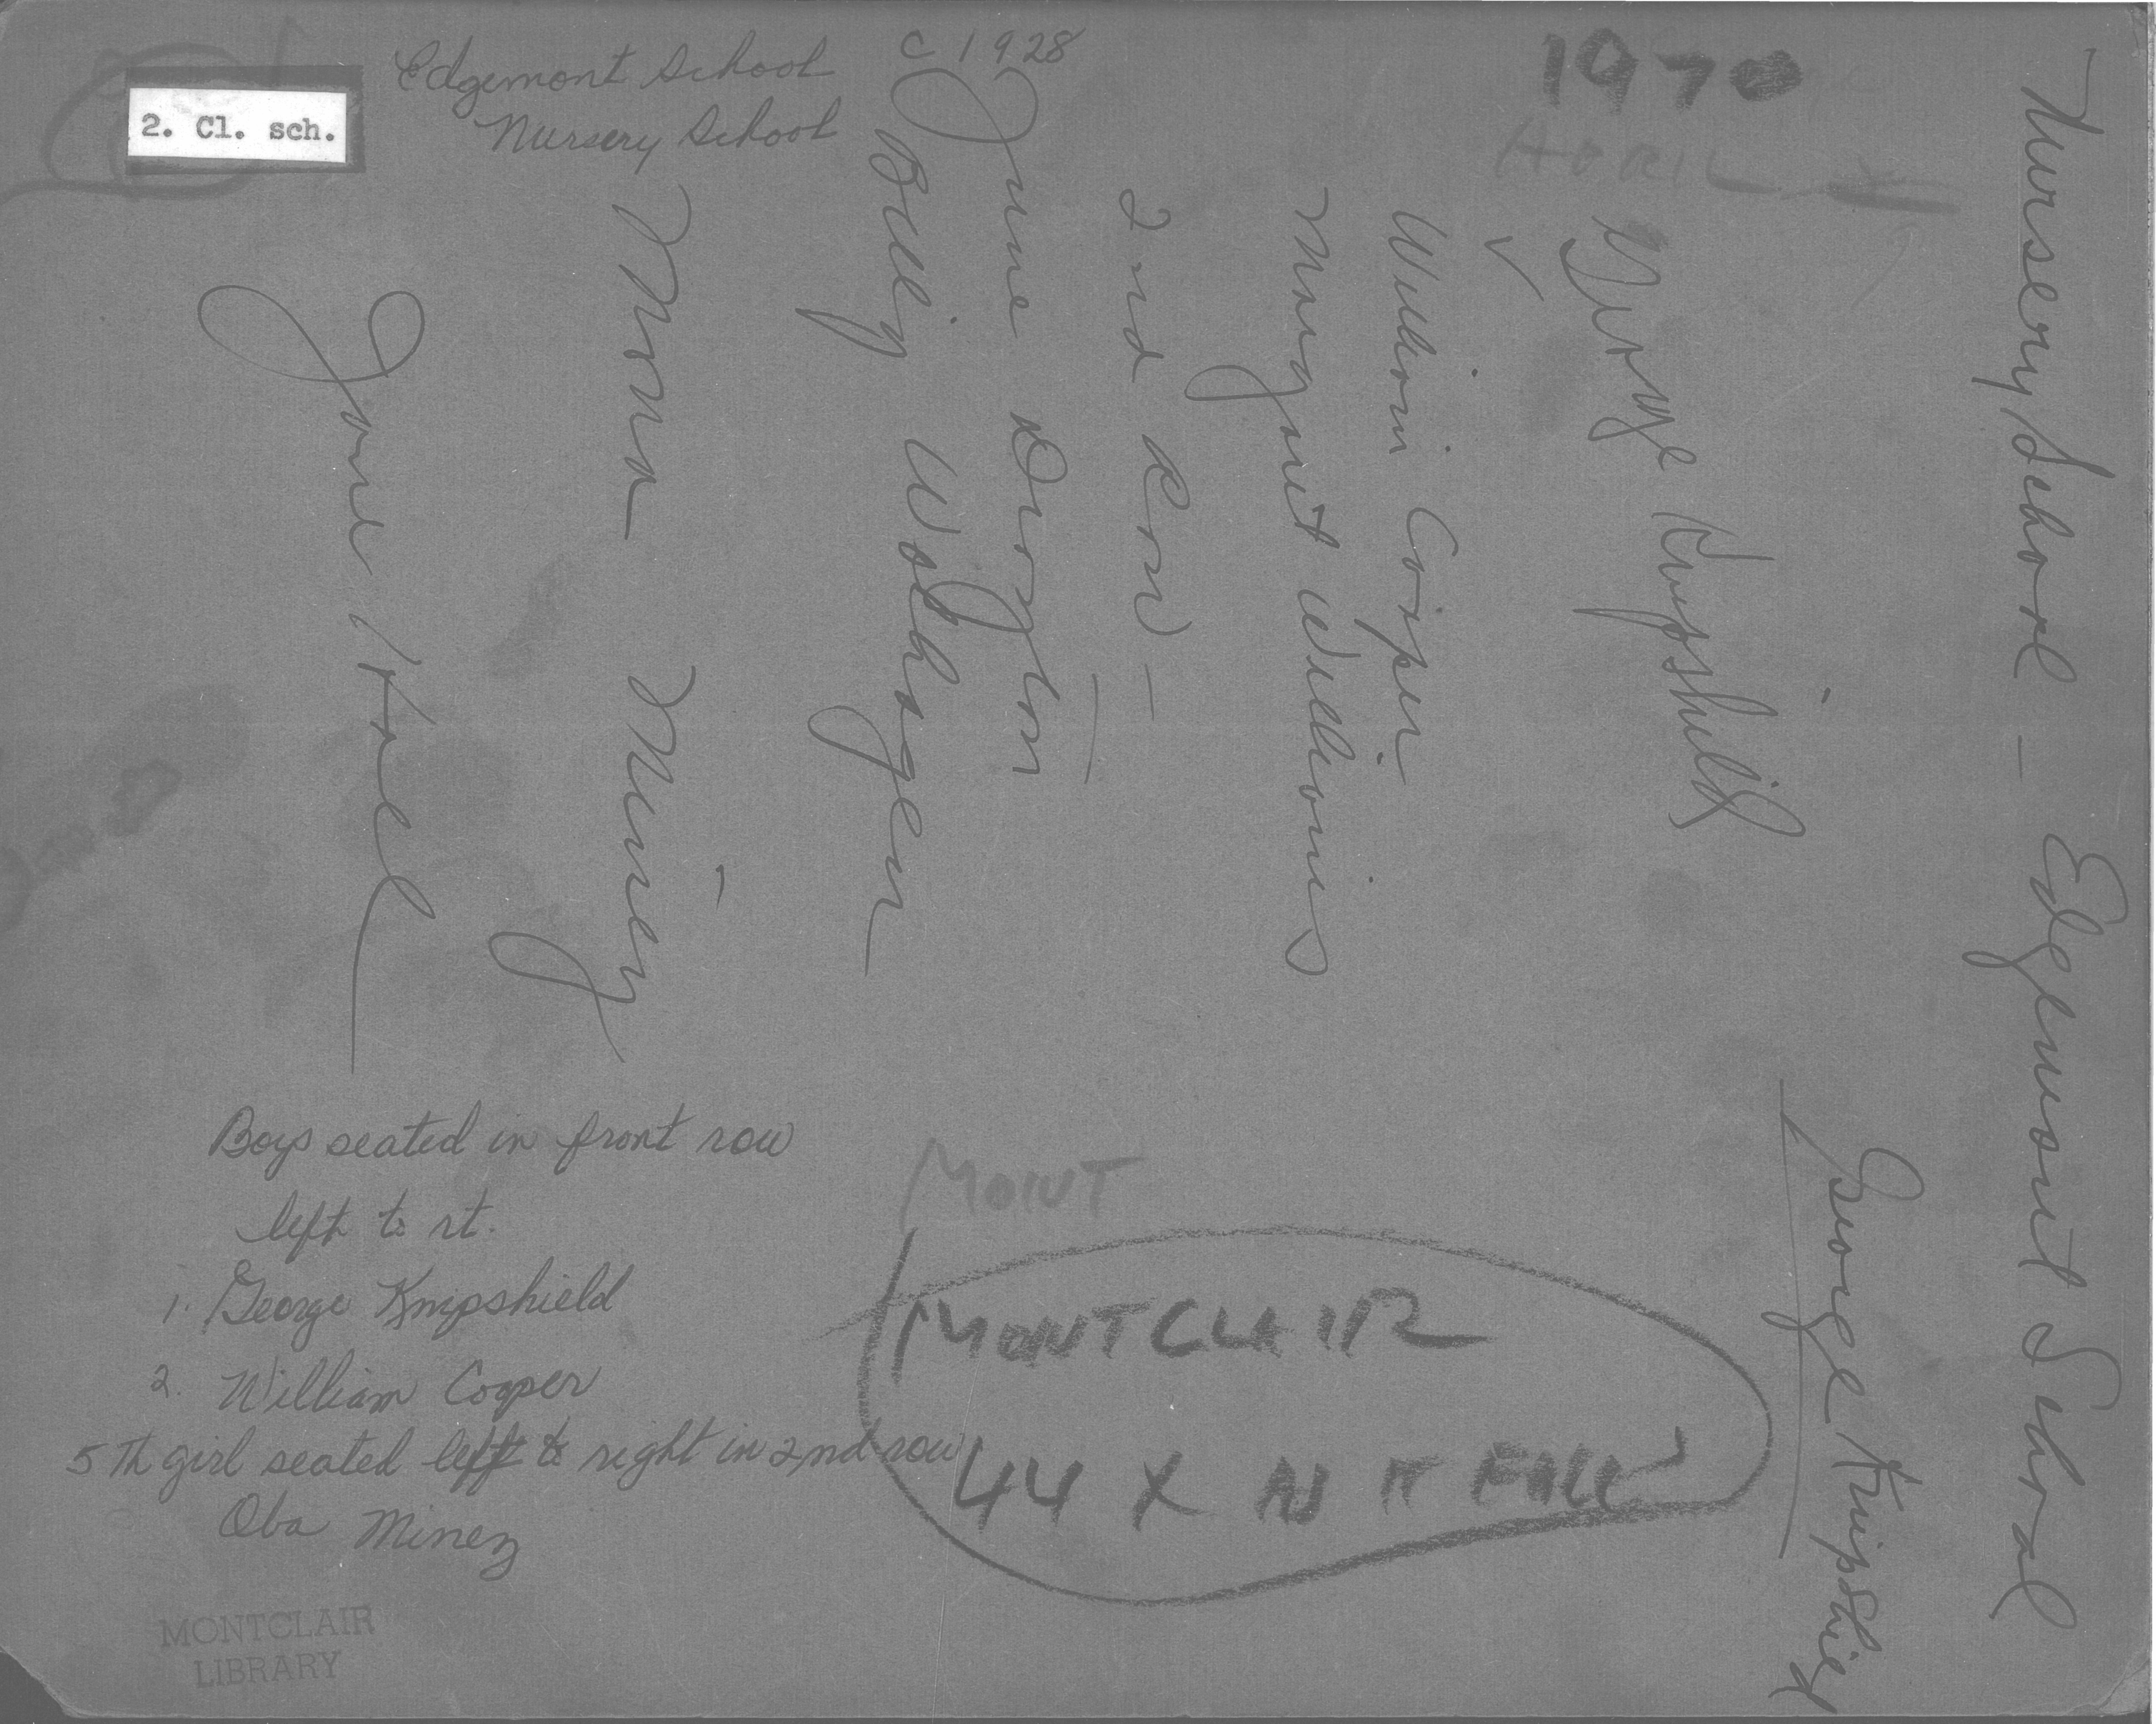 2. Cl. sch.
Edgemont School c 1928
Nursery School
1970
APRIL
Nursery School – Edgemont School
George Knipshield
George Knipshild
William Cooper
Margaret Williams
2nd Row –
June
Billy Wolhagen
Mona Minez
Jane
Boys seated in front row
left to rt.
1. George Knipshield
2. William Cooper
5th girl seated left to right in 2nd row
Oba Minez
MONT
MONTCLAIR
44 X AS IT FALL
MONTCLAIR
LIBRARY